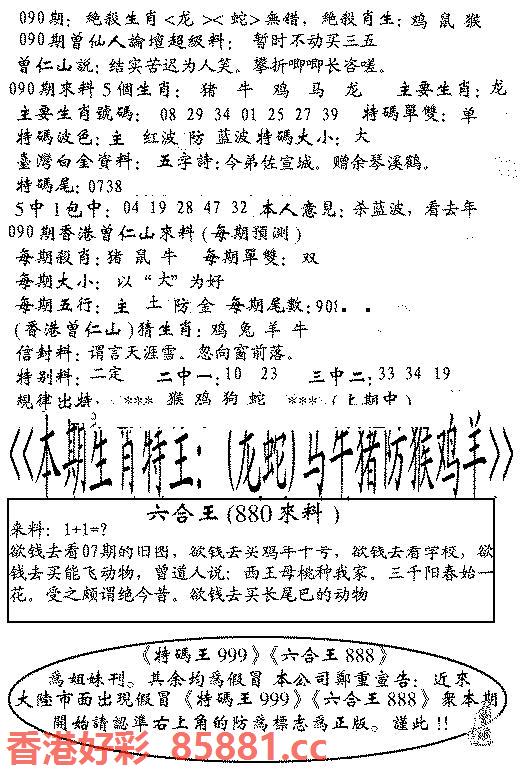 090期: 絶殺生肖<龙><蛇>無錯, 絶殺肖生: 鸡 鼠 猴
090期曾仙人論壇超級料: 暂时不动买三五
曾仁山説: 结实苦迟为人笑。攀折唧唧长咨嗟。
090期來料5個生肖: 猪 牛 鸡 马 龙 主要生肖: 龙
主要生肖號碼: 08 29 34 01 25 27 39 特碼單雙: 单
特碼波色: 主 红波 防 蓝波 特碼大小: 大
臺灣白金資料: 五字詩: 令弟佐宣城。赠余琴溪鹤。
特碼尾: 0738
5中1包中: 04 19 28 47 32 本人意見: 杀蓝波, 看去年
090期香港曾仁山來料(每期預測)
每期殺肖: 猪 鼠 牛 每期單雙: 双
每期大小: 以“大”为好
每期五行: 主 土 防 金 每期尾數: 908
(香港曾仁山)猜生肖: 鸡 兔 羊 牛
信封料: 谓言天涯雪。忽向窗前落。
特别料: 二定 二中一: 10 23 三中二: 33 34 19
規律出特: *** 猴 鸡 狗 蛇 *** (上期中)
《本期生肖特王: (龙蛇)马牛猪防猴鸡羊》
六合王(880來料)
来料: 1+1=?
欲钱去看07期的旧图, 欲钱去买鸡年十号, 欲钱去看学校, 欲
钱去买能飞动物, 曾道人说: 西王母桃种我家。三千阳春始一
花。受之颇谓绝今昔。欲钱去买长尾巴的动物
《特碼王999》《六合王888》
爲姐妹刊。其余均爲假冒 本公司鄭重宣告: 近來
大陸市面出現假冒《特碼王999》《六合王888》衆本期
開始請認準右上角的防爲標志爲正版。謹此!!
香港好彩 85881.cc